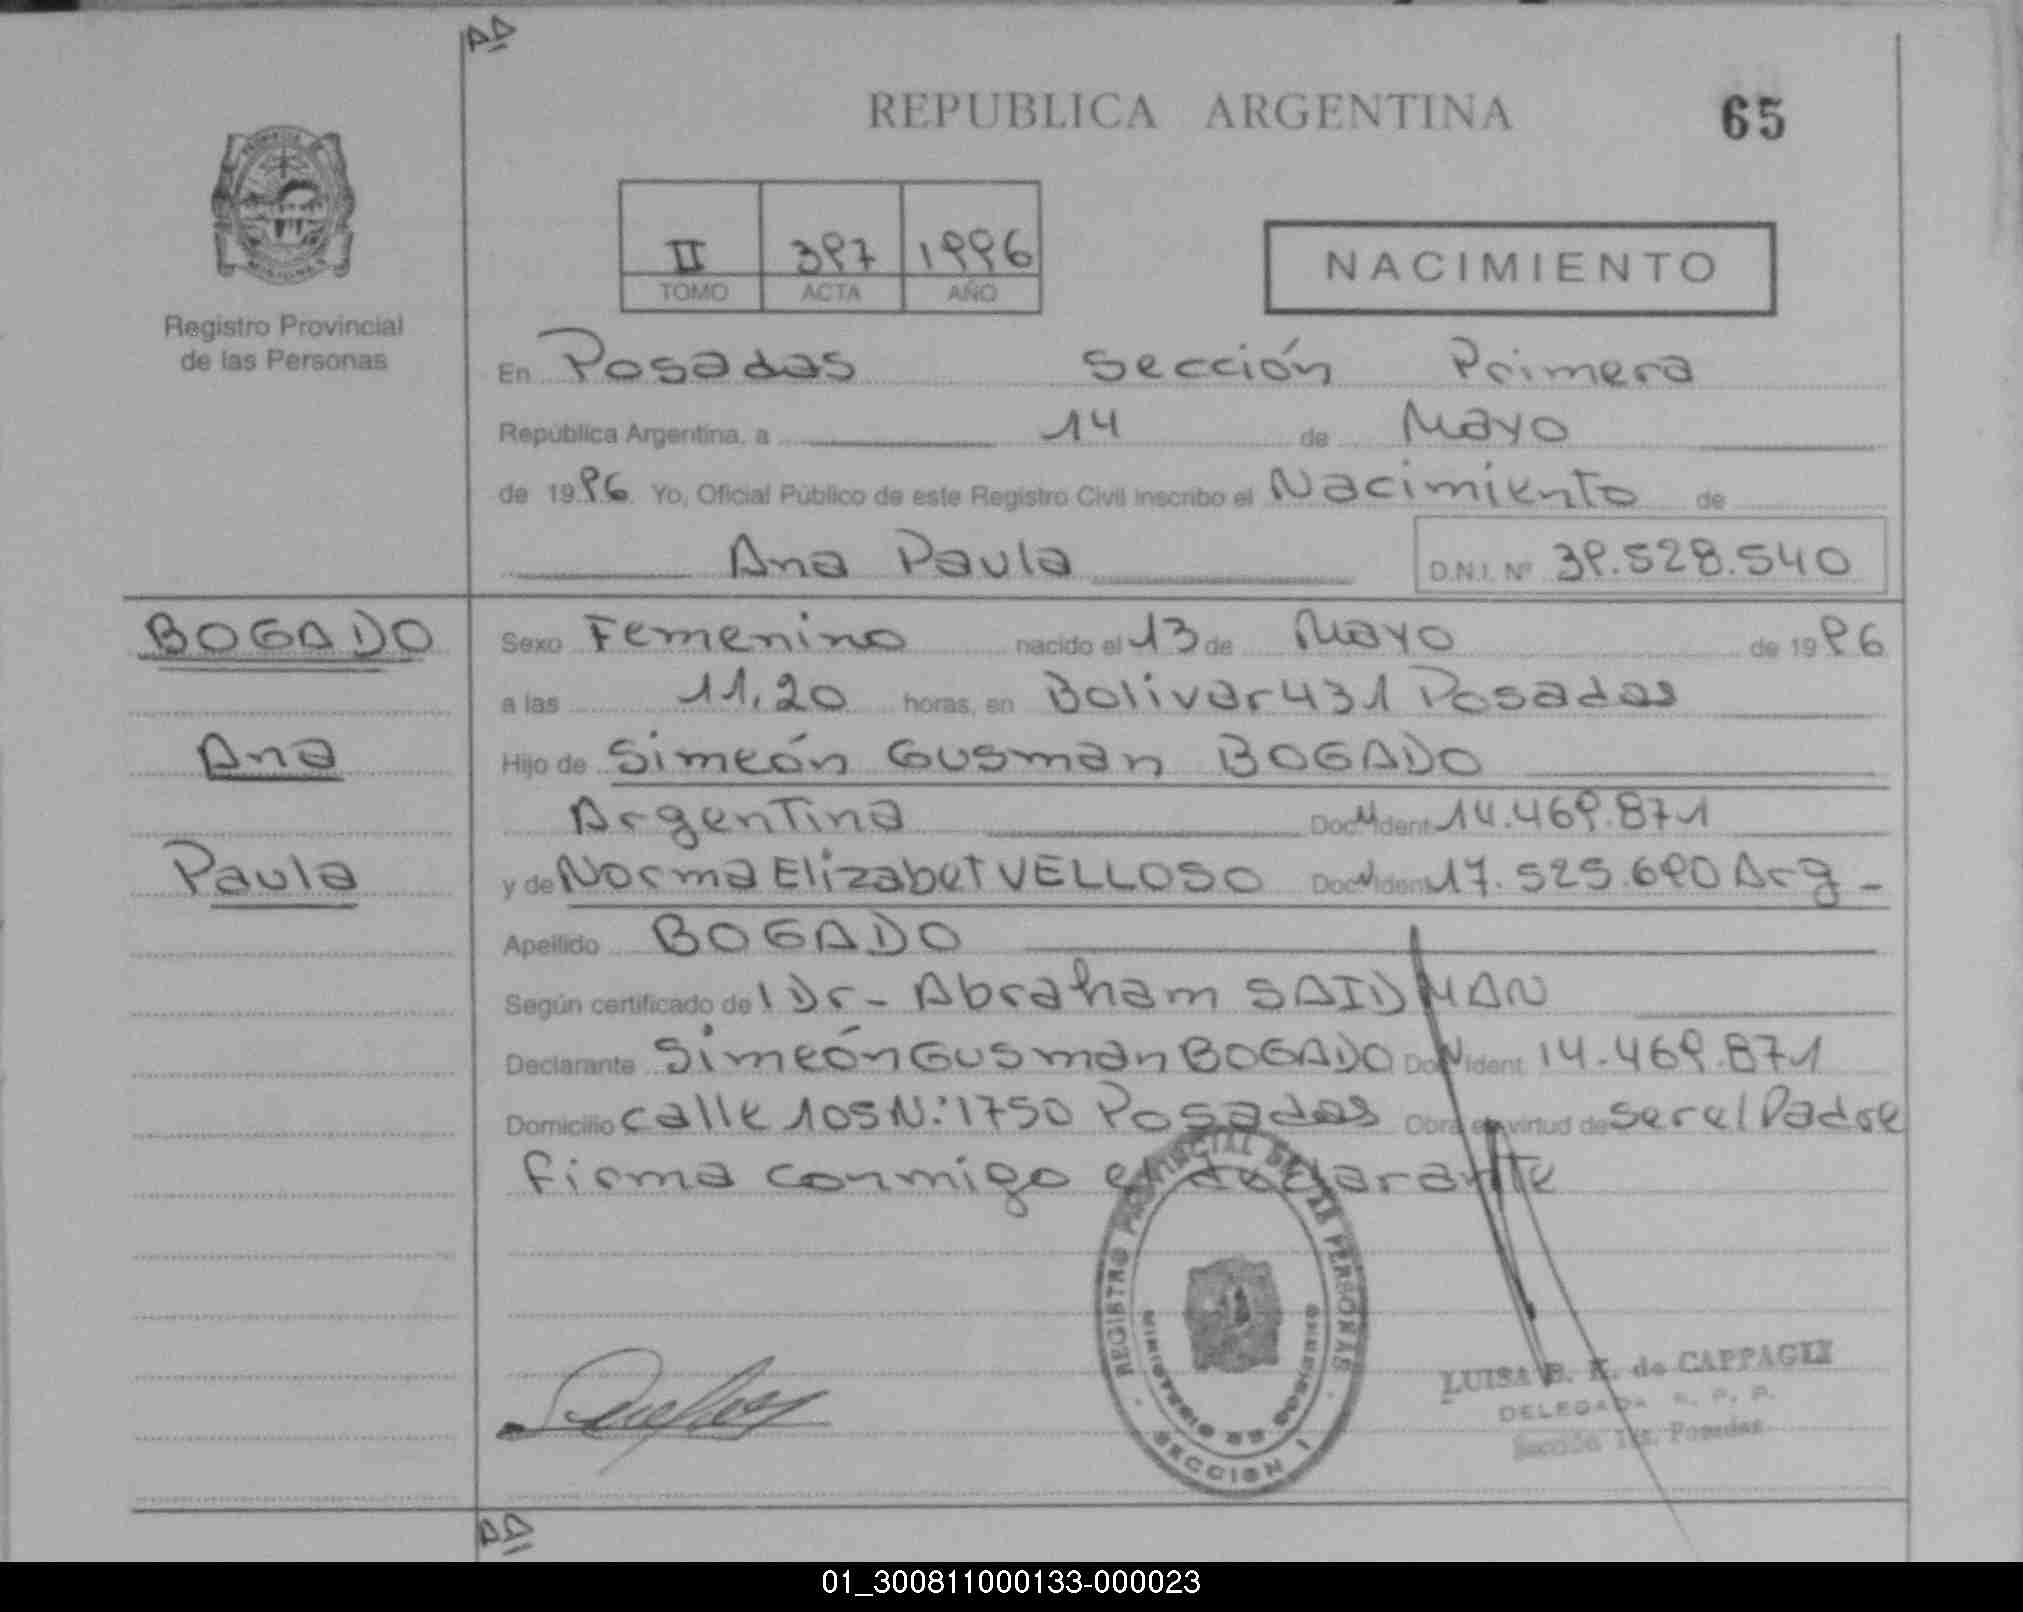 AD
REPUBLICA ARGENTINA
65
II 397 1996
TOMO ACTA AÑO
NACIMIENTO
Registro Provincial
de las Personas
En Posadas Sección Primera
República Argentina, a 14 de Mayo
de 1996 Yo, Oficial Público de este Registro Civil inscribo el Nacimiento de
Ana Paula D.N.I. Nº 39.528.540
BOGADO
Ana
Paula
Sexo Femenino nacido el 13 de Mayo de 1996
a las 11,20 horas, en Bolivar 431 Posadas
Hijo de Simeón Gusman BOGADO
Argentina Doc. Ident 14.469.871
y de Norma Elizabet VELLOSO Doc. Ident 17.525.690 Arg -
Apellido BOGADO
Según certificado de l Dr - Abraham SAIDMAN
Declarante Simeón Gusman BOGADO Doc. Ident 14.469.871
Domicilio calle 105 N:1750 Posadas Obra en virtud de ser el Padre
firma conmigo el declarante
REGISTRO PROVINCIAL DE LAS PERSONAS
MINISTERIO DE GOBIERNO
SECCION I
LUISA B. K. de
DELEGADA R. P. P.
Sección 1ra. Posadas
AD
01_300811000133-000023